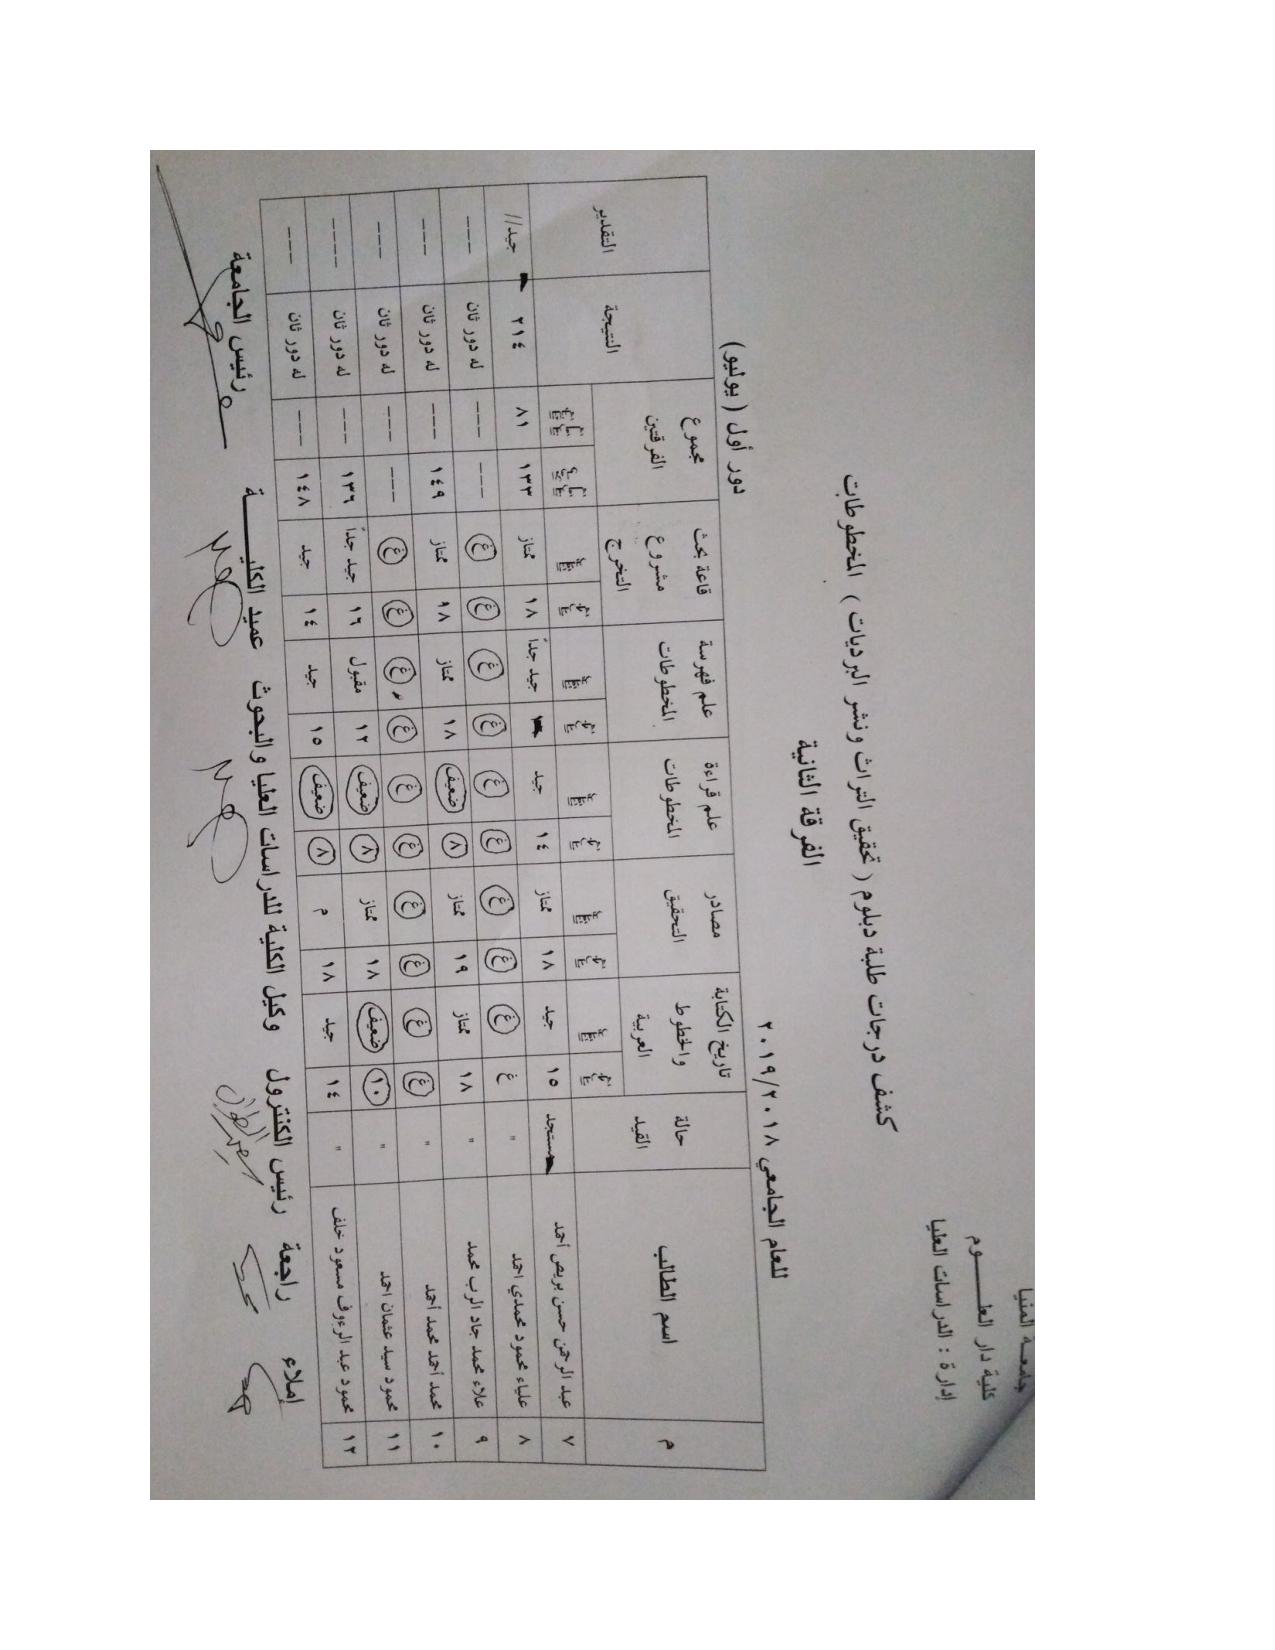 جامعـة المنيا
كلية دار العلـــــوم
إدارة : الدراسات العليا
كشف درجات طلبة دبلوم ( تحقيق التراث ونشر البرديات ) المخطوطات
الفرقة الثانية
للعام الجامعي ٢٠١٩/٢٠١٨ دور أول ( يوليو)
م اسم الطالب حالة القيد تاريخ الكتابة والخطوط العربية مصادر التحقيق علم قراءة المخطوطات علم فهرسة المخطوطات قاعة بحث مشروع التخرج مجموع الفرقتين النتيجة التقدير
٧ عبد الرحمن حسن بريص أحمد مستجد ١٥ جيد ١٨ ممتاز ١٤ جيد جيد جداً ١٨ ممتاز ١٣٣ ٨١ ٢١٤ جيد//
٨ علياء محمود محمدي احمد " غ غ غ غ غ غ غ غ غ غ --- --- له دور ثان ---
٩ علاء محمد جاد الرب محمد " ١٨ ممتاز ١٩ ممتاز ٨ ضعيف ١٨ ممتاز ١٨ ممتاز ١٤٩ --- له دور ثان ---
١٠ محمد أحمد محمد أحمد " غ غ غ غ غ غ غ غ غ غ --- --- له دور ثان ---
١١ محمود سيد عثمان احمد " ١٠ ضعيف ١٨ ممتاز ٨ ضعيف ١٢ مقبول ١٦ جيد جداً ١٣٦ --- له دور ثان ----
١٢ محمود عبد الرءوف مسعود خلف " ١٤ جيد ١٨ م ٨ ضعيف ١٥ جيد ١٤ جيد ١٤٨ --- له دور ثان ---
إملاء راجعة رئيس الكنترول وكيل الكلية للدراسات العليا والبحوث عميد الكليـــــــة رئيس الجامعة